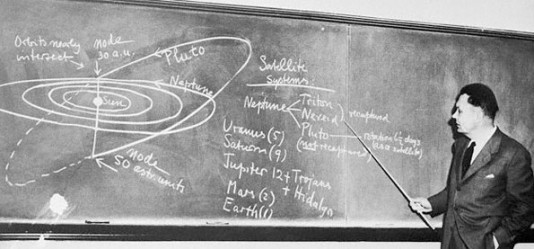 Orbits nearly
intersect
node
30 a.u.
Pluto
Neptune
Sun
node
50 astr. units
Satellite
Systems
Neptune
Triton
Nereid
recaptured
Pluto
(not recaptured)
rotation 6½ days
(as a satellite)
Uranus (5)
Saturn (9)
Jupiter 12 + Trojans
+ Hidalgo
Mars (2)
Earth (1)